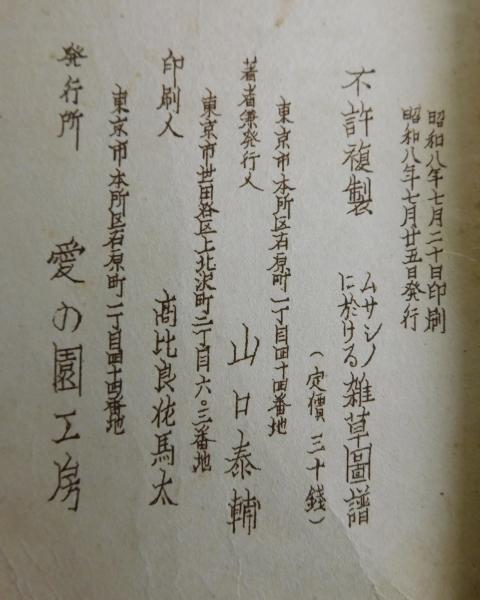 昭和八年七月二十日印刷
昭和八年七月廿五日発行
不許複製 ムサシノに於ける 雑草圖譜
(定價 三十錢)
東京市本所区石原町一丁目四十四番地
著者兼発行人 山口泰輔
東京市世田谷区上北沢町二丁目六〇三番地
印刷人 高比良佐馬太
東京市本所区石原町一丁目四十四番地
発行所 愛の園工房